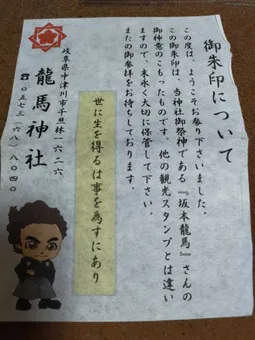 御朱印について
この度は、ようこそお参り下さいました。
この御朱印は、当神社御祭神である『坂本龍馬』さんの
御神意のこもったものです。他の観光スタンプとは違い
ますので、末永く大切に保管して下さい。
またの御参拝をお待ちしております。
世に生を得るは事を為すにあり
岐阜県中津川市千旦林一六二六
龍馬神社
☎０５７３（６８）８０４０